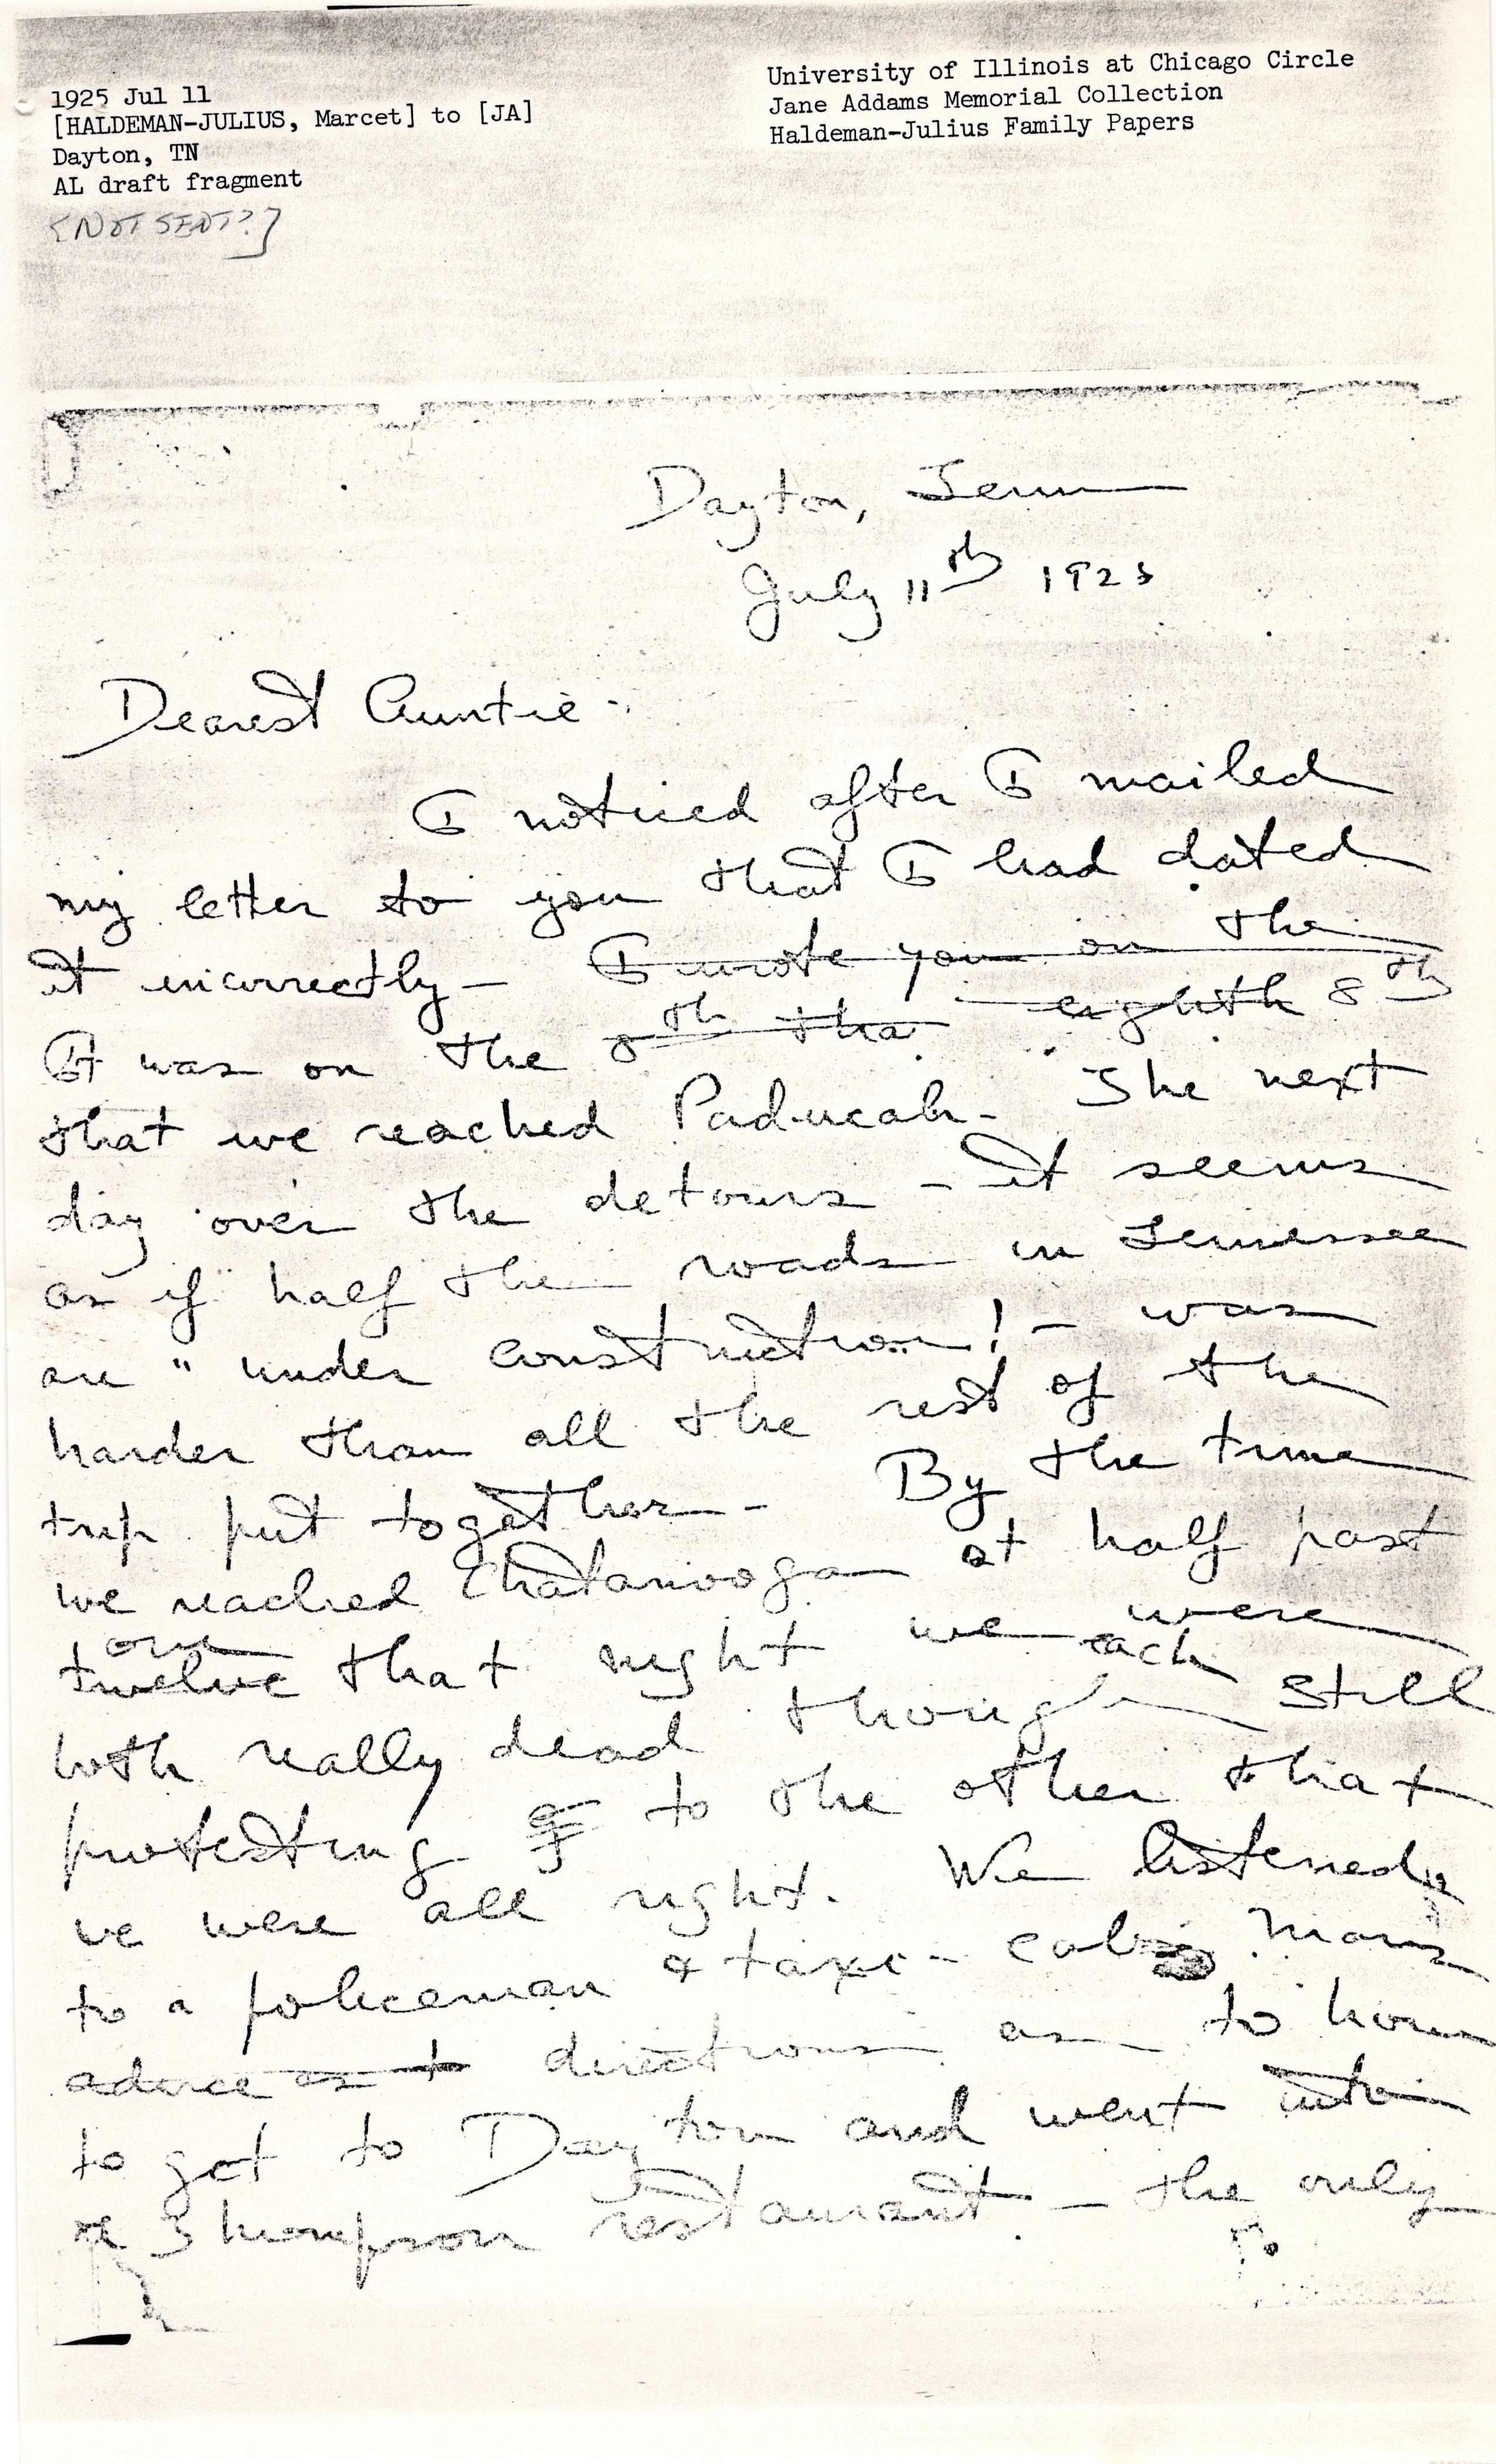 1925 Jul 11
[HALDEMAN-JULIUS, Marcet] to [JA]
Dayton, TN
AL draft fragment
[NOT SENT?]
University of Illinois at Chicago Circle
Jane Addams Memorial Collection
Haldeman-Julius Family Papers
Dayton, Tenn
July 11th 1925
Dearest Auntie -
I noticed after I mailed
my letter to you that I had dated
it incorrectly - I wrote you on the
It was on the 8th tha eighth 8th
that we reached Paducah - The next
day over the detours - it seems
as if half the roads in Tennessee
are "under construction! - was
harder than all the rest of the
trip put together - By the time
we reached Chatanooga at half past
one
twelve that night we were
both really dead though each still
protesting to the other that
we were all right. We listened
to a policeman & taxi-cab man's
advice as t directions as to how
to get to Dayton and went into
a Thompson restaurant - the only